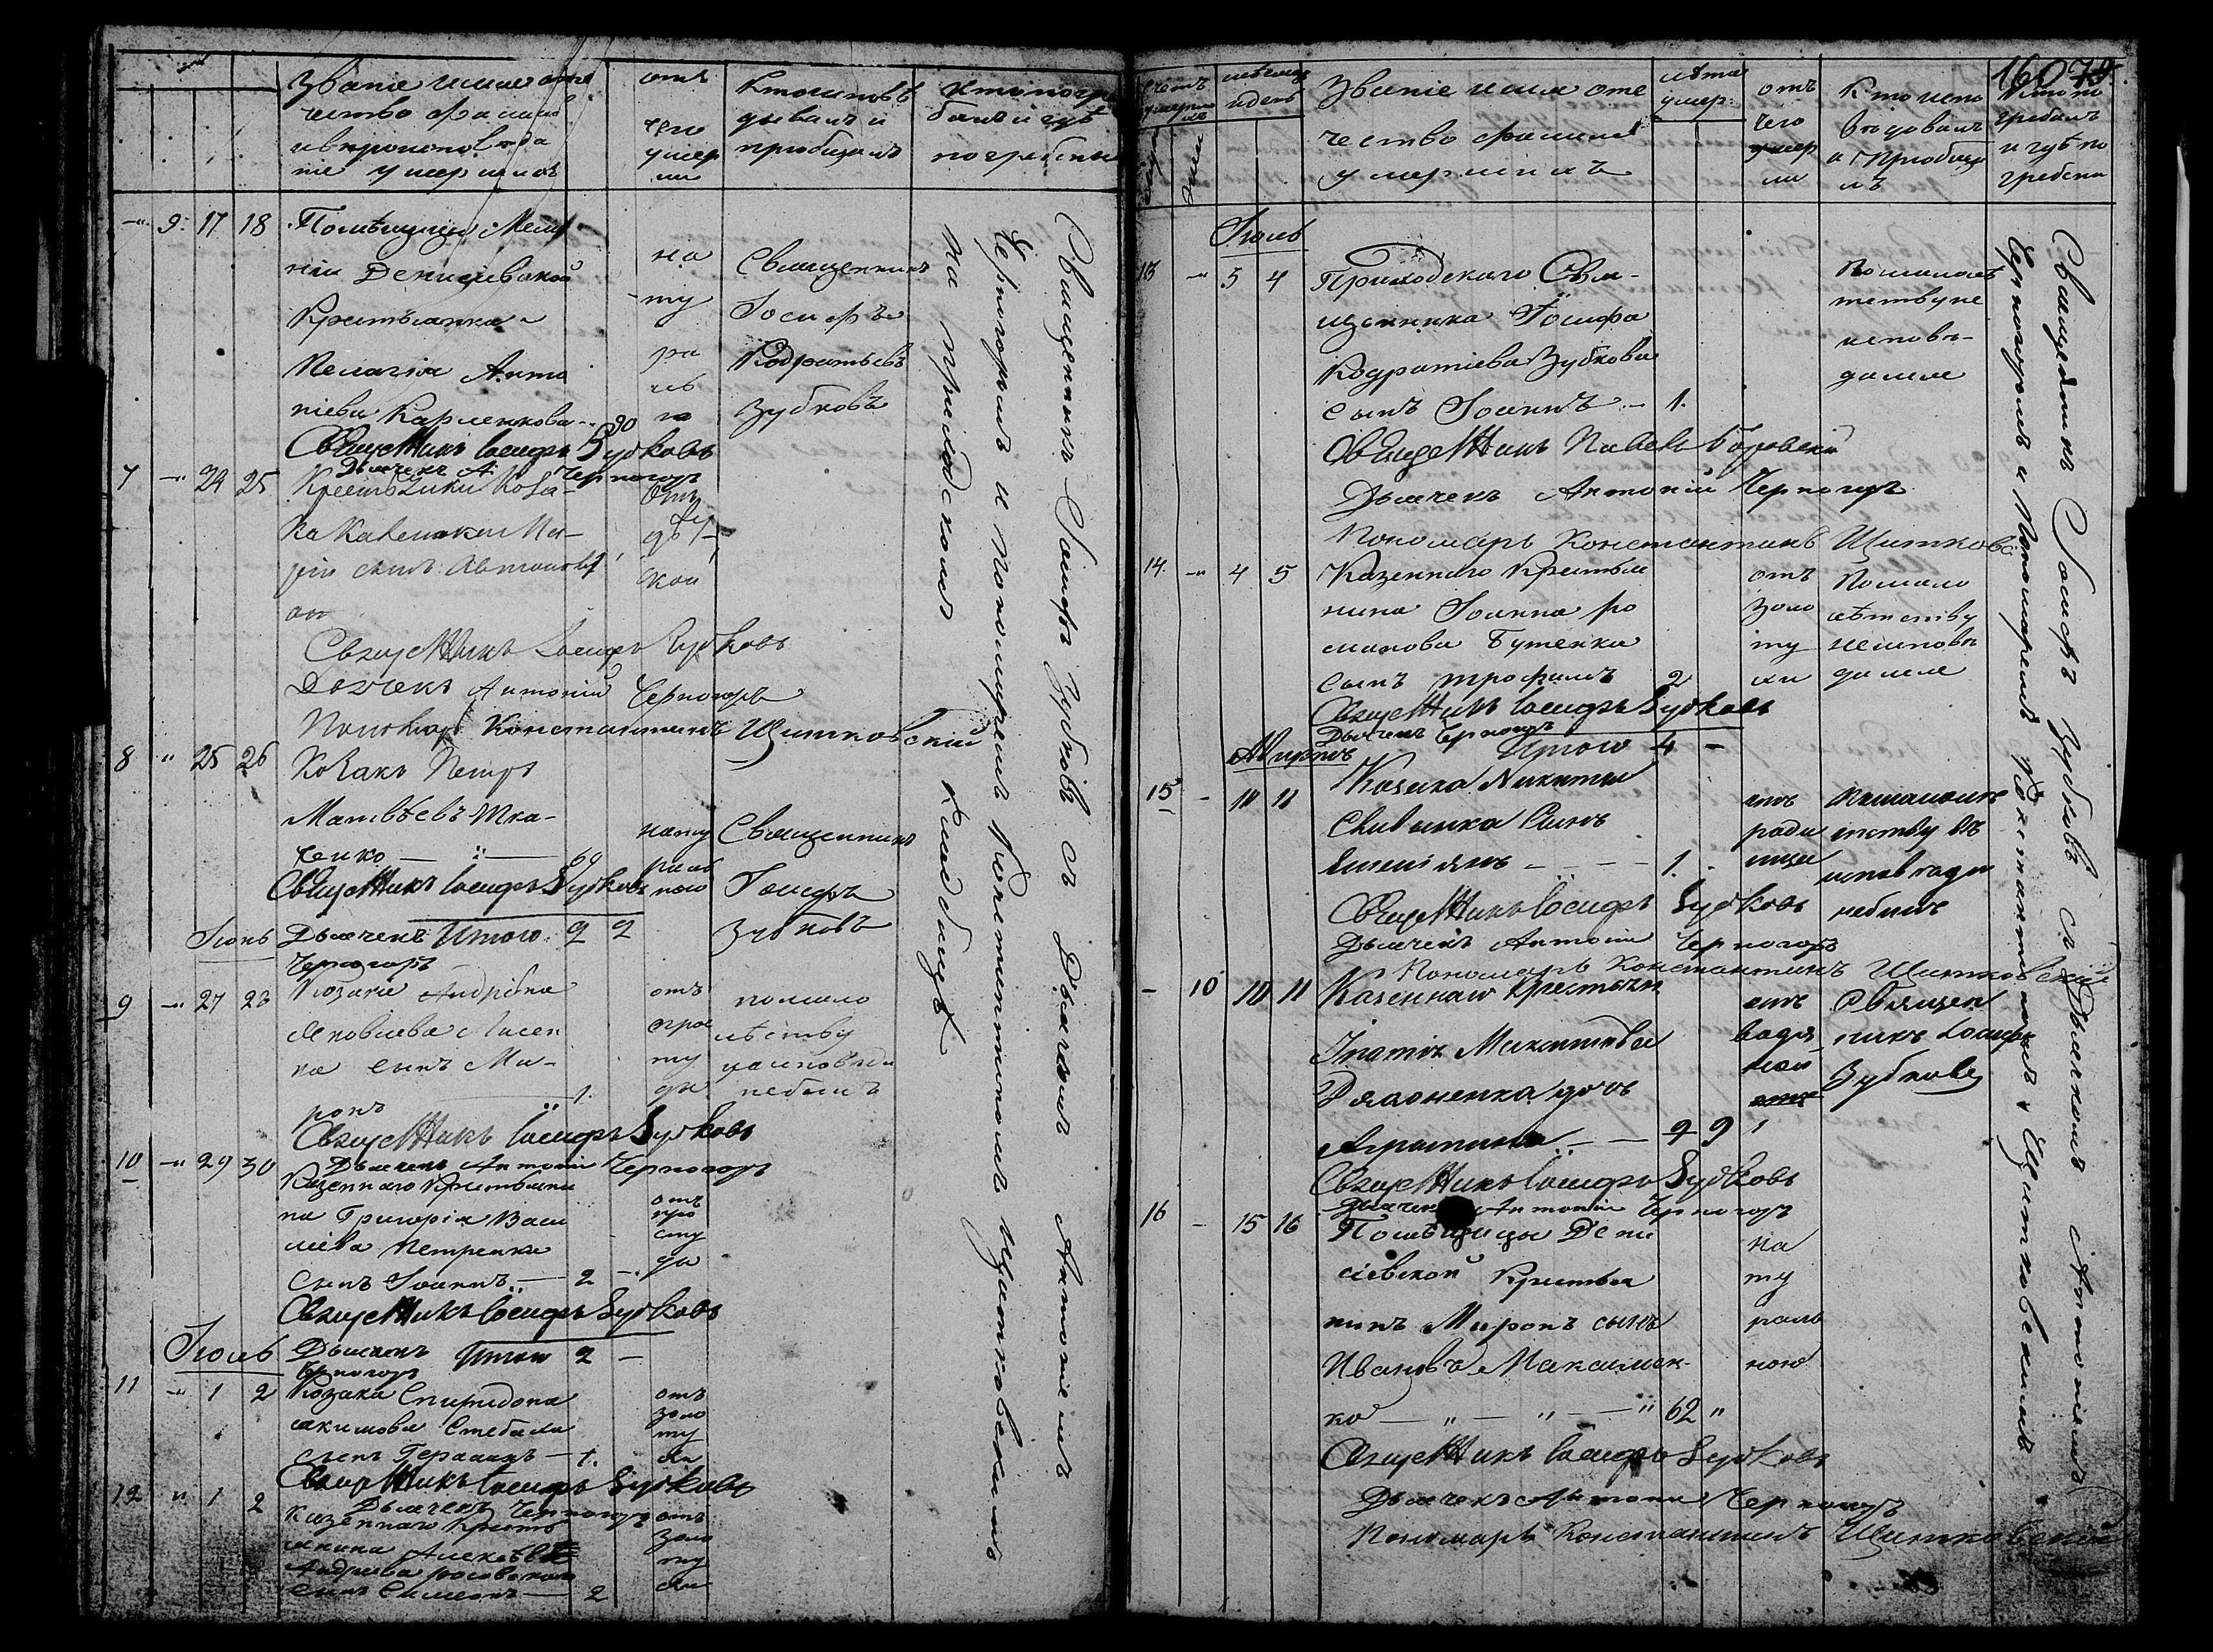 Званіе имя оте
чество фамилія
и вѣроисповѣда
ніе умершихъ
отъ
чего
умер
ли
Кто исповѣ
дывалъ и
пріобщалъ
Кто погре
балъ и гдѣ
погребены
9 17 18 Помѣщицы
Денисіевской
Крестьянка
Пелагія Анто
ніева Карпенкова 90
на
ту
ра
ль
но
Священникъ
Іосифъ
Кодратьевъ
Зубковъ
Священникъ Іосифъ Зубковъ
Дьячекъ А. Черногоръ
7 24 25
сынъ
Священникъ Іосифъ Зубковъ
Дьячекъ Антоній Черногоръ
Пономарь Константинъ Щитковскій
8 25 26 Козакъ Петръ
Матвѣевъ Тка-
ченко 69
нату
раль
ною
Священникъ
Іосифъ
Зубковъ
Священникъ Іосифъ Зубковъ
Дьячекъ Итого 2 2
Черногоръ
Іюнь
9 27 28 Козака Андрѣя
Яковлева Лисен
ка сынъ Ми-
ронъ 1.
отъ
прос
ту
ды
по мало
лѣтству
исповѣди
небылъ
Священникъ Іосифъ Зубковъ
Дьячекъ Антоній Черногоръ
10 29 30 Казеннаго Крестьяни
на Григорія Васи
лиева Петренка
сынъ Іоаннъ 2
отъ
про
сту
ды
Священникъ Іосифъ Зубковъ
Дьячекъ Итого 2
Черногоръ
Іюль
11 1 2 Козака Спиридона
Якимова Стебла
сынъ Герасимъ 1.
отъ
золо
ту
хи
Священникъ Іосифъ Зубковъ
Дьячекъ Черногоръ
12 1 2 Казеннаго Кресть
янина Алексѣя
Андреева
сынъ Симеонъ 2
отъ
золо
ту
хи
Священникъ Іосифъ Зубковъ съ Дьячкомъ Антоніемъ
Черногоромъ и пономаремъ Константиномъ Щитковскимъ
на приходскомъ кладбищѣ
Счетъ
умерш
ихъ
мѣсяц
и день
Званіе имя оте
чество фамилія
умершихъ
лѣта
умер.
отъ
чего
умер
ли
Кто испо
вѣдовалъ
и пріобща
лъ
Кто по
гребалъ
и гдѣ по
гребены
Іюль
13 3 4 Приходскаго Свя-
щенника Іосифа
Кодратіева Зубкова
сынъ Іоаннъ 1.
По малолѣ
тству не
исповѣ-
данъ
Священникъ Павелъ Боровскій
Дьячекъ Антоній Черногоръ
Пономарь Константинъ Щитковс.
14. 4 5 Казеннаго Крестья
нина Іоанна Ро
манова Бутенка
сынъ Трофимъ 2
отъ
золо
ту
хи
По мало
лѣтству
неисповѣ
данъ
Священникъ Іосифъ Зубковъ
Дьячекъ Черногоръ
Итого 4
Августъ
15 10 11 Козака Никиты
сынъ
1.
отъ
роди
мца
по малолѣ
тству въ
исповѣди
небылъ
Священникъ Іосифъ Зубковъ
Дьячекъ Антоній Черногоръ
Пономарь Константинъ Щитковскій
10 10 11 Казеннаго Крестьян
дочь
Агрипина 9
отъ
водя
ной
Священ
никъ Іосифъ
Зубковъ
Священникъ Іосифъ Зубковъ
Дьячекъ Антоній Черногоръ
16 15 16 Помѣщицы Дени
сіевской Крестья
нинъ Миронъ сынъ
Ивановъ Максимен-
ко 62
на
ту
раль
ною
Священникъ Іосифъ Зубковъ
Дьячекъ Антоній Черногоръ
Пономарь Константинъ Щитковскій
Священникъ Іосифъ Зубковъ съ Дьячкомъ Антоніемъ
Черногоромъ и Пономаремъ Константиномъ Щитковскимъ